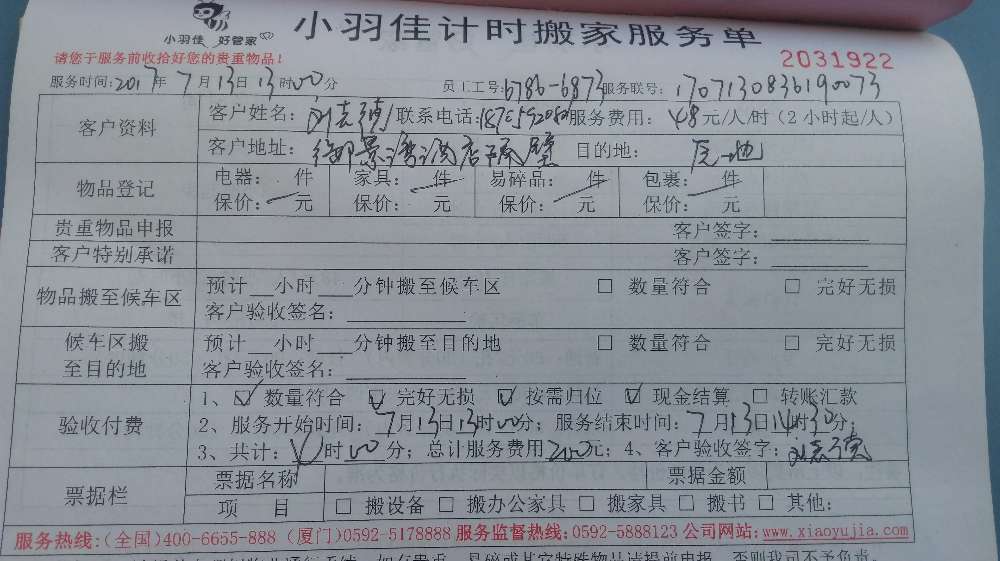 小羽佳 好管家
小羽佳计时搬家服务单
请您于服务前收拾好您的贵重物品!
2031922
服务时间:2017年7月13日13时00分 员工工号:6786-6873 服务联号:1707130836190073
客户资料
客户姓名: 联系电话: 服务费用:48元/人/时(2小时起/人)
客户地址: 目的地:
物品登记
电器: 件 家具: 件 易碎品: 件 包裹: 件
保价: 元 保价: 元 保价: 元 保价: 元
贵重物品申报 客户签字:
客户特别承诺 客户签字:
物品搬至候车区
预计 小时 分钟搬至候车区 □ 数量符合 □ 完好无损
客户验收签名:
候车区搬
至目的地
预计 小时 分钟搬至目的地 □ 数量符合 □ 完好无损
客户验收签名:
验收付费
1、☑ 数量符合 ☑ 完好无损 ☑ 按需归位 ☑ 现金结算 □ 转账汇款
2、服务开始时间:7月13日13时00分; 服务结束时间:7月13日14时30分;
3、共计: 时00分; 总计服务费用200元; 4、客户验收签字:
票据栏
票据名称 票据金额
项 目 □ 搬设备 □ 搬办公家具 □ 搬家具 □ 搬书 □ 其他:
服务热线:(全国)400-6655-888 (厦门)0592-5178888 服务监督热线:0592-5888123 公司网站:www.xiaoyujia.com